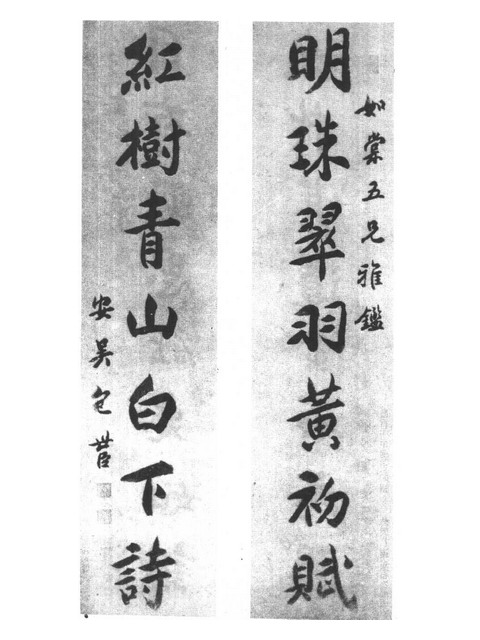 如棠五兄雅鑑
明珠翠羽黃初賦
紅樹青山白下詩
安吳包世臣